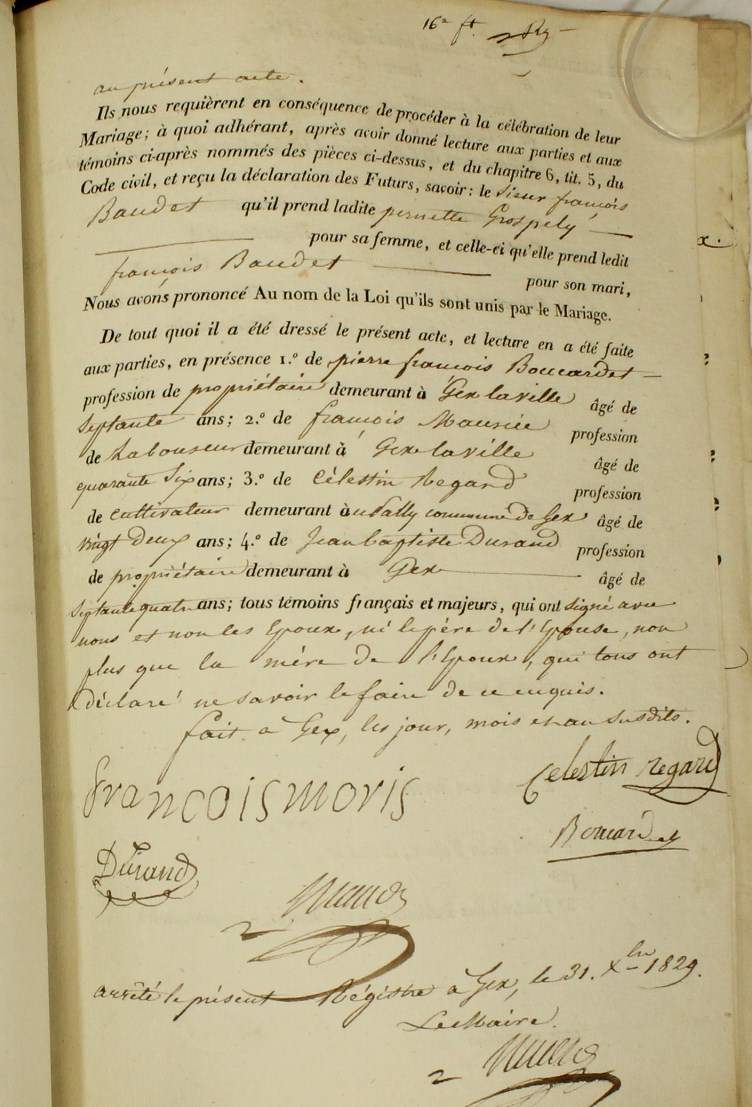 16e ft.
au présent acte.
Ils nous requièrent en conséquence de procéder à la célébration de leur
Mariage; à quoi adhérant, après avoir donné lecture aux parties et aux
témoins ci-après nommés des pièces ci-dessus, et du chapitre 6, tit. 5, du
Code civil, et reçu la déclaration des Futurs, savoir: le Sieur françois
Baudet qu'il prend ladite pernette Grospely
pour sa femme, et celle-ci qu'elle prend ledit
françois Baudet pour son mari,
Nous avons prononcé Au nom de la Loi qu'ils sont unis par le Mariage.
De tout quoi il a été dressé le présent acte, et lecture en a été faite
aux parties, en présence 1.º de pierre françois Boucardet
profession de propriétaire demeurant à Gex la ville âgé de
Septante ans; 2.º de françois Maurice profession
de Laboureur demeurant à Gex la ville âgé de
quarante Six ans; 3.º de Célestin Regard profession
de Cultivateur demeurant à commune de Gex âgé de
vingt Deux ans; 4.º de Jean baptiste Durand profession
de propriétaire demeurant à Gex âgé de
Septante quatre ans; tous témoins français et majeurs, qui ont signé avec
nous et non les Epoux, ni le père de l'Epouse, non
plus que la mère de l'Epoux, qui tous ont
déclaré ne savoir le faire de ce enquis.
fait à Gex, les jour, mois et an susdits.
francois moris
Celestin regard
Durand
arrêté le présent Régistre à Gex, le 31. Xbre 1829.
Le Maire.